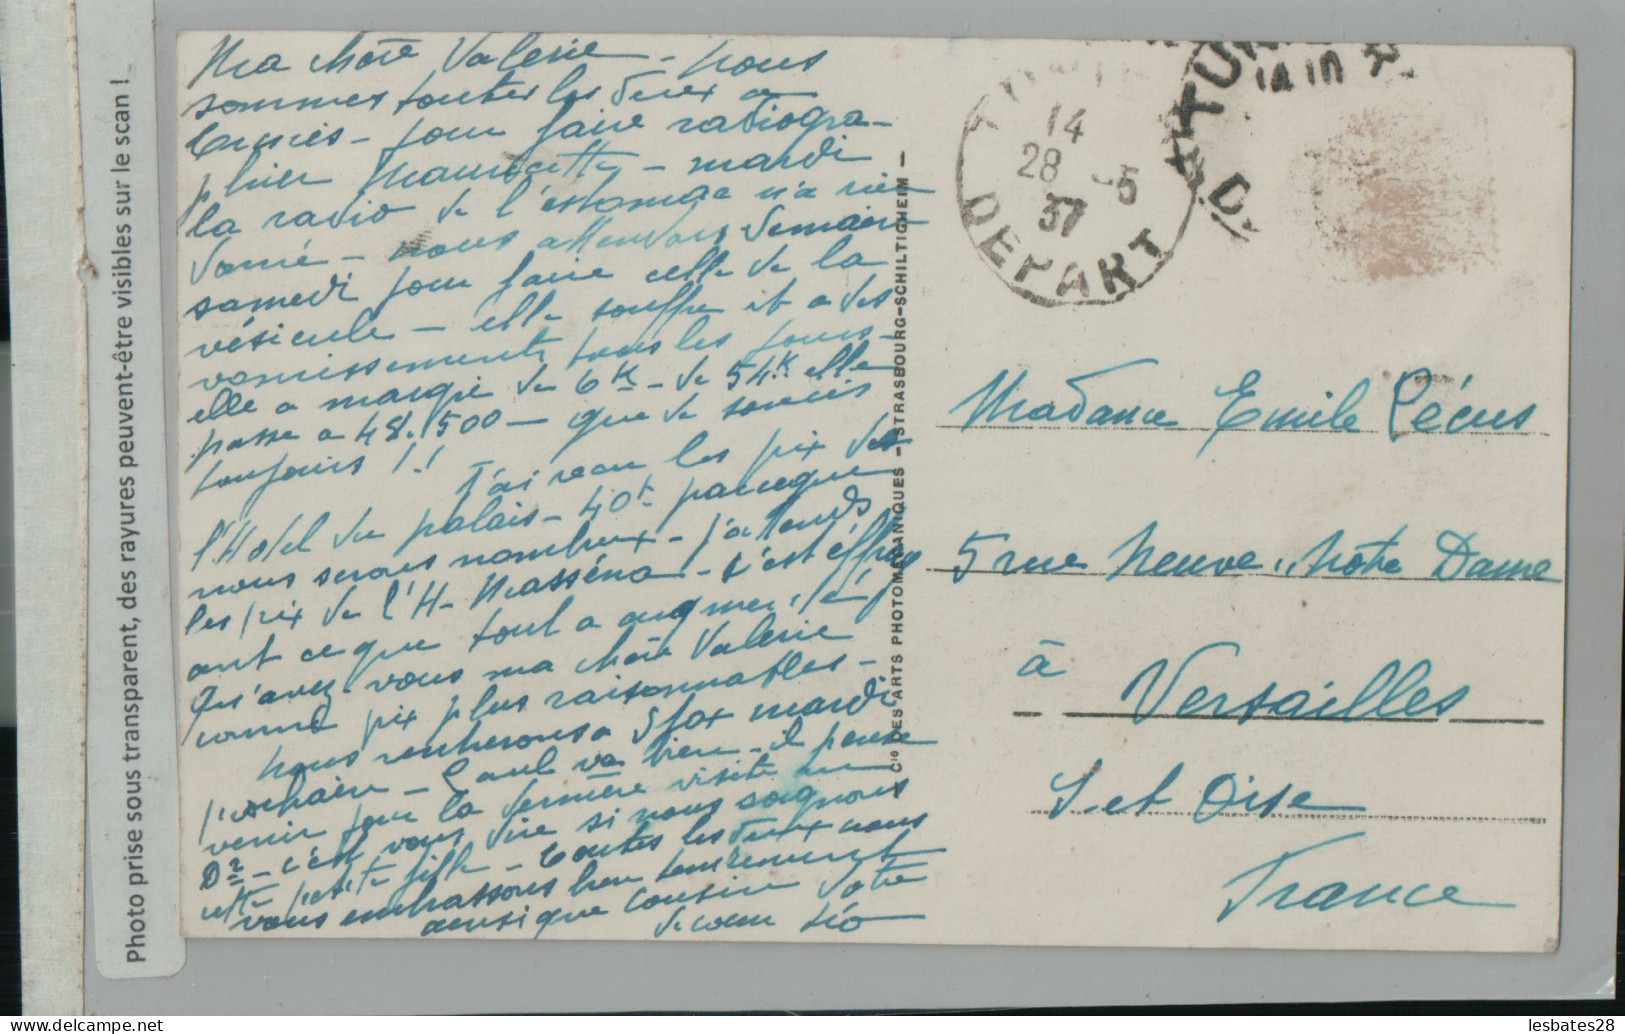 Photo prise sous transparent, des rayures peuvent-être visibles sur le scan !
Ma chère Valérie - nous
sommes toutes les deux a
Tunis - pour faire radiogra-
phier Maurisette - mardi
la radio de l'estomac n'a rien
donné - nous attendons demain
samedi pour faire celle de la
vésicule - elle souffre et a des
vomissements tous les jours -
elle a maigri de 6K - de 54K elle
passe a 48.500 - que de soucis
toujours !!
J'ai reçu les prix de
l'Hotel du palais - 40f parceque
nous serons nombreux - j'attends
les prix de l'H. Masséna - c'est effray
ant ce que tout a augmenté
Qu'avez-vous ma chère Valérie
comme prix plus raisonnables -
Nous rentrerons a Sfax mardi
prochain - Paul va bien - il pense
venir pour la dernière visite du
Dr - c'est vous dire si nous soignons
cette petite fille - Toutes les deux nous
vous embrassons bien tendrement
ainsi que cousin Votre
de cœur Léo
Cie DES ARTS PHOTOMECANIQUES - STRASBOURG-SCHILTIGHEIM -
14
28 -5
37
DEPART
TUN
14 10
D
Madame Emile Pécus
5 rue Neuve Notre Dame
à
Versailles
S. et Oise
France
lesbates28